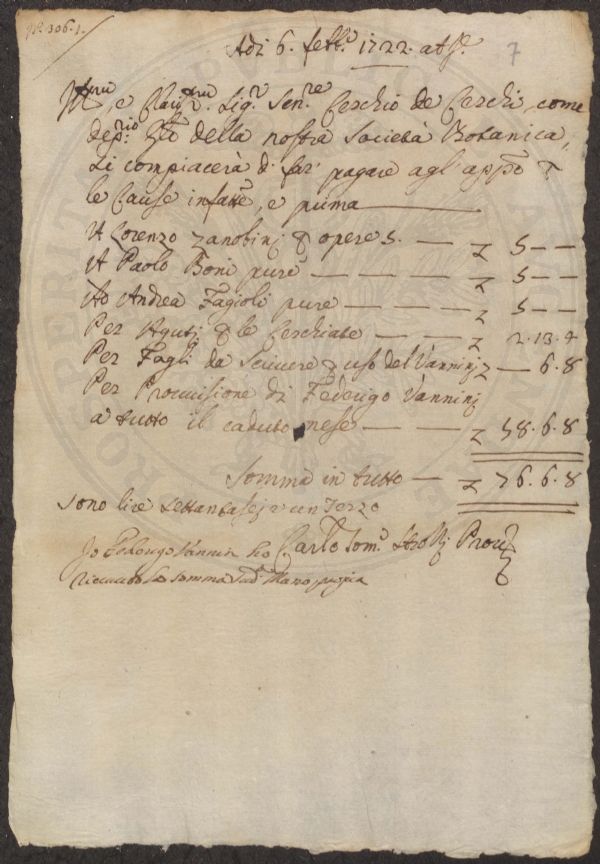 N.º 306.1.
7
Adi 6. febb.º 1722. ab I.e
Ill.mo e Clariss.mo Sig.r Sen.re Cerchio de Cerchi, come
dep.rio della nostra Società Botanica,
si compiacerà di far' pagare agl'appo
le Cause infatte, e prima
A Lorenzo Zanobinj opere 5. — 5 — —
A Paolo Boni pure — 5 — —
Ad Andrea Fagioli pure — 5 — —
Per Agutj le Cerchiate — 2.13.4
Per Fogli da Scrivere uso del Vanninj — 6.8
Per Provvisione di Federigo Vanninj
a tutto il caduto mese — 58.6.8
Somma in tutto — 76.6.8
Sono lire settantasej e un terzo
Io Federigo Vannini ho Carlo Tom.º Strozzj Prov.r
ricevuto la somma sud.a Mano propria